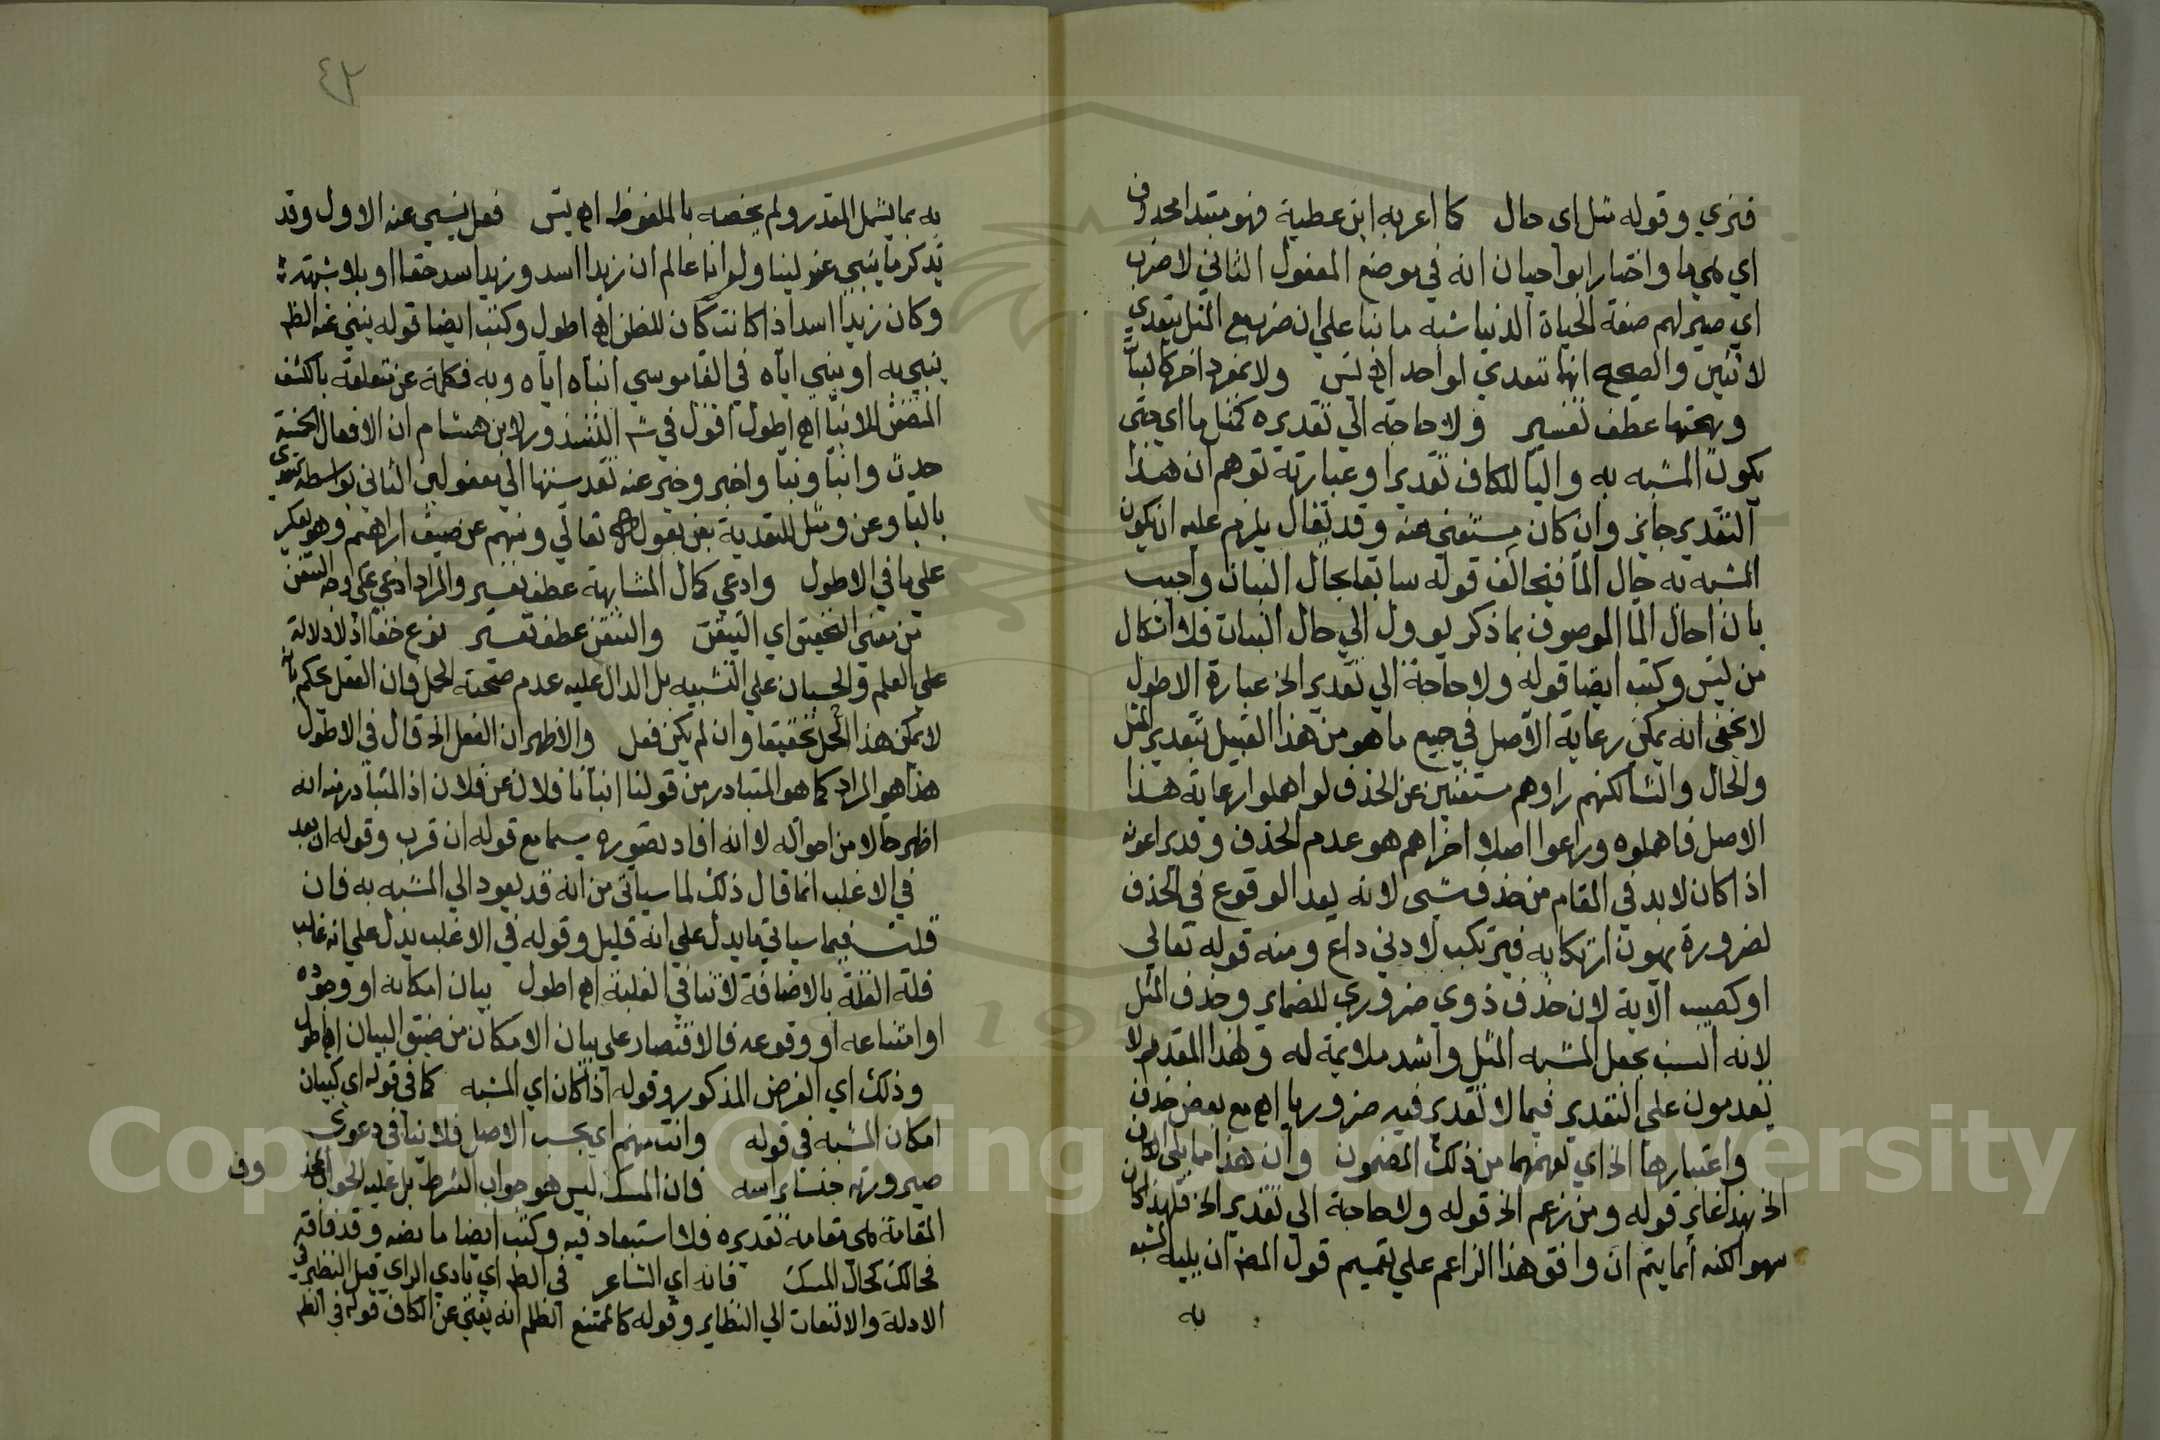 فنري وقوله مثل اى حال كما اعربه ابن عطية فهو مبتدا محذوف
اي هي ما واختار ابو احيان انه في موضع المفعول الثاني لاضرب
اي صير لهم صفة الحياة الدنيا شبه ما بناء على ان ضرب مع المثل يتعدى
لاثنين والصحيح انها تتعدي لواحد اه يس ولا بمفرد اخر كالنبات
وبهجتها عطف تفسير ولا حاجة الي تقديره كمثل ما اي حتى
يكون المشبه به واليا للكاف تقديرا وعبارته توهم ان هذا
التقدير جائز وان كان مستغنى عنه وقد يقال يلزم عليه ان يكون
المشبه به حال الما فيخالف قوله سابقا بحال النبات واجيب
بان حال الما الموصوف بما ذكر يوول الي حال النبات فلا اشكال
من يس وكتب ايضا قوله ولا حاجة الي تقدير الخ عبارة الاطول
لا يخفى انه يمكن رعاية الاصل في جميع ما هو من هذا القبيل بتقدير المثل
والحال والشا لكنهم راوهم مستغنين عن الحذف لو اهملوا رعاية هذا
الاصل فاهملوه وراعوا اصلا اخر اهم هو عدم الحذف وقد يراعونه
اذا كان لابد في المقام من حذف شي لانه بعد الوقوع في الحذف
لضرورة يهون ارتكابه فيرتكب لادني داع ومنه قوله تعالي
او كصيب الآية لان حذف ذوي ضروري للضماير وحذف المثل
لانه انسب بجعل المشبه المثل واشد ملايمة له ولهذا المقدم لا
يقدمون علي التقدير فيما لا تقدير فيه ضروريا اه مع بعض حذف
واعتبارها الخ اي لفهمهما من ذلك المضمون وان هذا مما يلي الكاف
الخ بهذا غاير قوله ومن زعم الخ قوله ولا حاجة الي تقدير الخ فلهذا كان
سهوا لكنه انما يتم ان وافق هذا الزاعم علي تعميم قول المص ان يليه المشبه
به
٤٣
به بما يشمل المقدر ولم يخصه بالملفوظ اه يس فعل ينبي عنه الاول وقد
يذكر ما ينبي عنه لينا ولو انا عالم ان زيدا اسد وزيدا اسد حقا او بلا شبهة
وكان زيدا اسد اذا كانت كان للظن اه اطول وكتب ايضا قوله ينبي عنه الظ
ينبي به او ينبي اياه في القاموسي انباه اياه وبه فكلمة عن متعلقة بالكشف
المضمن للانباء اه اطول اقول في ش الشذور لابن هشام ان الافعال الخمسة
حدث وانبا ونبا واخبر وخبر عنه تعديتها الي مفعولين الثاني بواسطة تتعدى
بالبا وعن ومثل للتعدية بعن بقوله تعالي ونبهم عن ضيف ابراهيم وهو يعكر
علي ما في الاطول وادعي كمال المشابهة عطف تفسير والمراد ادعي على وجه التيقن
من معني التحقيق اي التيقن والتيقن عطف تفسير نوع خفا اذ لا دلالة
علي العلم والحسبان علي التشبيه بل الدال عليه عدم صحة الحمل فان العقل يحكم بانه
لا يمكن هذا الحمل تحقيقا وان لم يكن فعل والاظهر ان الفعل الخ قال في الاطول
هذا هو المراد كما هو المتبادر من قولنا انبانا فلان عن فلان اذ المتبادر منه انه
اظهر حالا من احواله لا انه افاد تصوره سيما مع قوله ان قرب وقوله ان بعد
في الاغلب انما قال ذلك لما سياتي من انه قد يعود الي المشبه به فان
قلت فيما سياتي ما يدل علي انه قليل وقوله في الاغلب يدل علي انه غالب
قلت القلة بالاضافة لا تنافي الغلبة اه اطول بيان امكانه او وجوده
او امتناعه او وقوعه فالاقتصار علي بيان الامكان من ضيق البيان اه اطول
وذلك اي الغرض المذكور وقوله اذا كان اي المشبه كما في قوله اي كبيان
امكان المشبه في قوله وانت منهم اي بحسب الاصل فلا ينافي دعوى
صيرورته جنسا براسه فان المسك ليس هو جواب الشرط بل عليه الجواب المحذوف
المقامة هي مقامه تقديره فلا استبعاد فيه وكتب ايضا ما نصه وقد فاقه
فحالك كحال المسك فانه اي الشاعر في الظ اي بادي الراي قبل النظر في
الادلة والالتفات الي النظاير وقوله كالممتنع الظلم انه يغني عن الكاف قوله في الظ